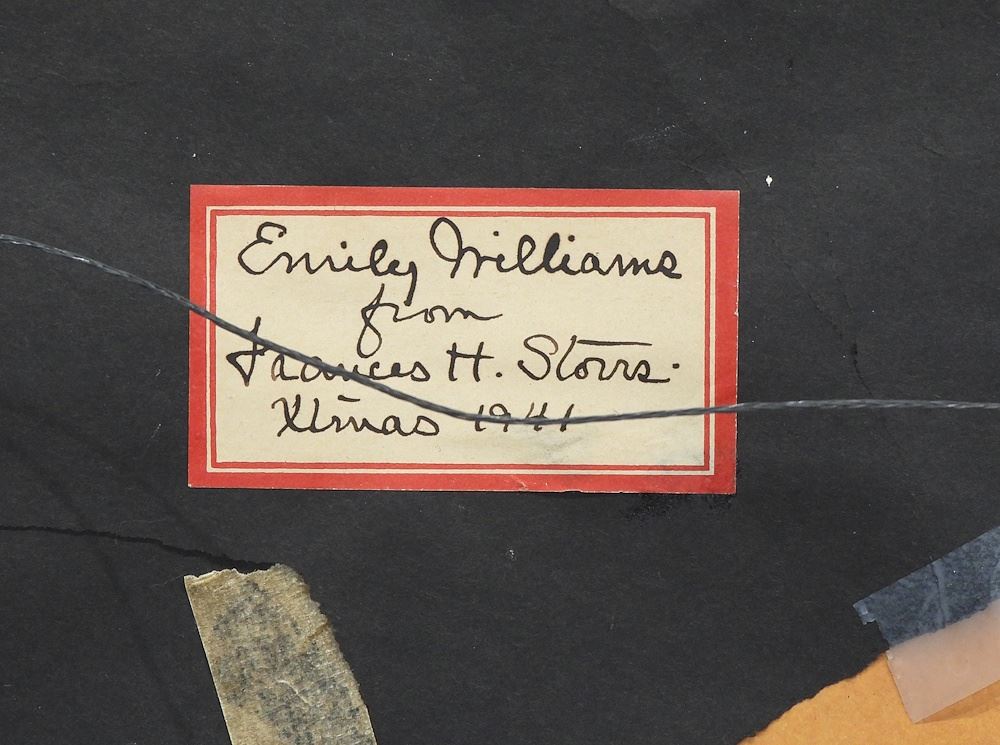 Emily Williams
from
Frances H. Storrs.
Xtmas 1941